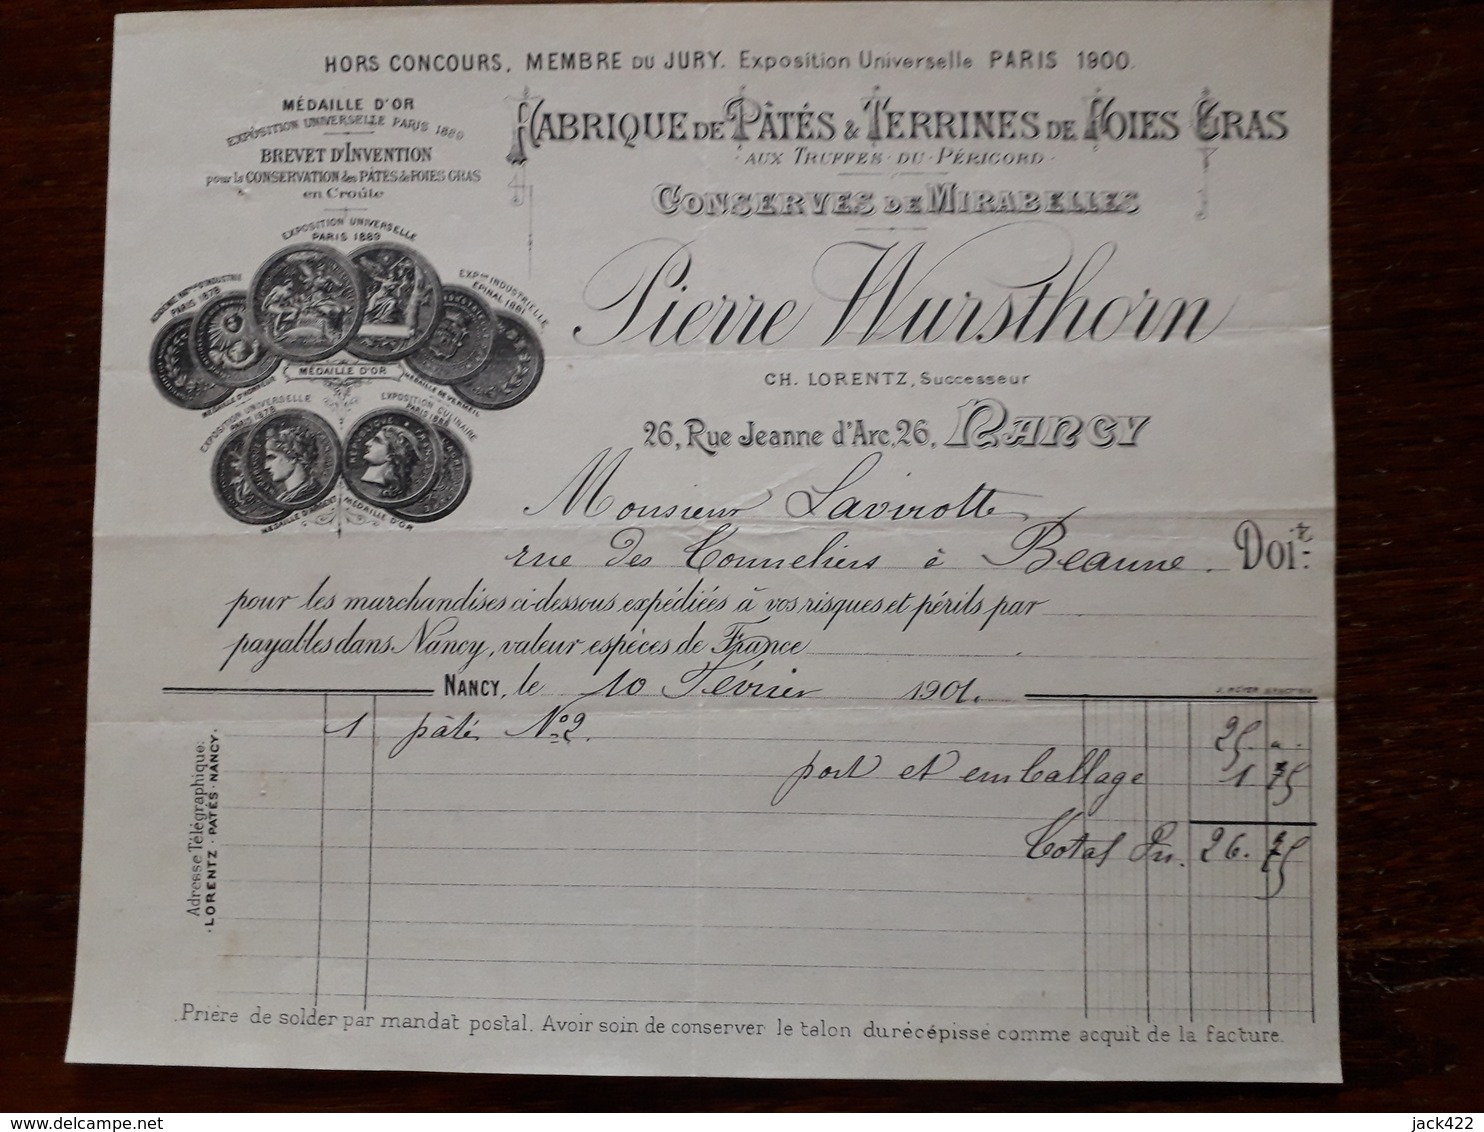 HORS CONCOURS, MEMBRE DU JURY. Exposition Universelle PARIS 1900.
MÉDAILLE D'OR
EXPOSITION UNIVERSELLE PARIS 1889
BREVET D'INVENTION
pour la CONSERVATION des PÂTÉS de FOIES GRAS
en Croûte
FABRIQUE DE PÂTÉS & TERRINES DE FOIES GRAS
AUX TRUFFES DU PÉRIGORD
CONSERVES DE MIRABELLES
EXPOSITION UNIVERSELLE
PARIS 1889
PARIS 1878
EXPon INDUSTRIELLE
EPINAL 1881
MÉDAILLE D'OR
MÉDAILLE D'HONNEUR
MÉDAILLE DE VERMEIL
EXPOSITION UNIVERSELLE
PARIS 1878
EXPOSITION CULINAIRE
PARIS 1888
MÉDAILLE D'ARGENT
MÉDAILLE D'OR
Pierre Wursthorn
CH. LORENTZ, Successeur
26, Rue Jeanne d'Arc, 26, NANCY
Monsieur Lavirotte
rue des Tonneliers à Beaune. Doit
pour les marchandises ci-dessous expédiées à vos risques et périls par
payables dans Nancy, valeur espèces de France
NANCY, le 10 Février 1901.
1 pâté No 2. 25. "
port et emballage 1 75
Total Frs. 26. 75
Adresse Télégraphique:
LORENTZ · PATÉS · NANCY.
Prière de solder par mandat postal. Avoir soin de conserver le talon du récépissé comme acquit de la facture.
www.delcampe.net
jack422